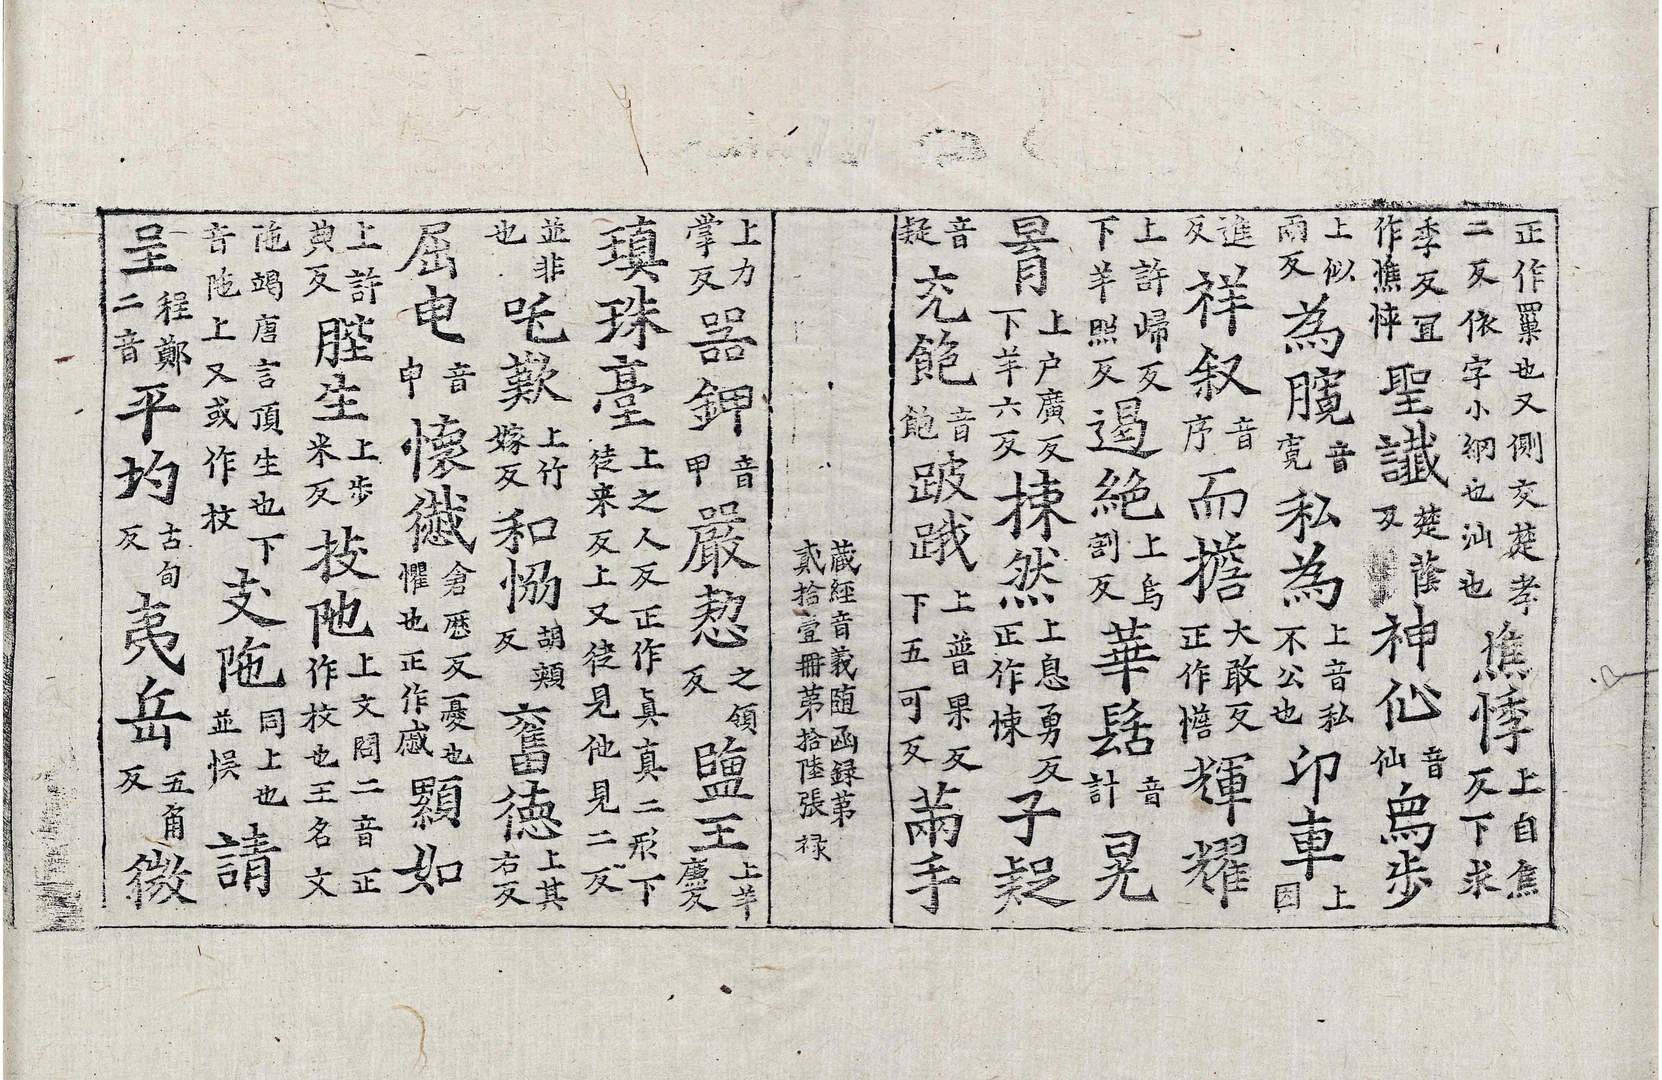 正作罺也又側交楚孝二反依字小網也汕也㷀悸上自焦反下求
季反冝作憔悴聖讖楚䕃反神仚音仙烏步
上似兩反為臗音寛私為上音私不公也印車上因
進反祥叙音序而擔大敢反正作憺輝耀
上許歸反下羊照反遏絶上烏割反華髻音計晃
昱上户廣反下羊六反捒然上息勇反正作悚子疑
音疑充飽音飽跛䠎上普果反下五可反兩手
藏經音義随函録第貳拾壹冊第拾陸張 禄
上力掌反噐鉀音甲嚴慗之領反鹽王上羊廉反
瑱珠臺上之人反正作真真二形下徒来反上又徒見他見二反
並非也吒歎上竹嫁反和㤦胡頰反奮徳上其右反
屈申音申懷㦸倉歷反憂也懼也正作慼顆如
上許典反䏶生上步米反技阤上文閇二音正作枝也王名文
阤竭唐言頂生也下音阤上又或作杖支陁同上也並悞請
呈程鄭二音平均古旬反夷岳五角反微